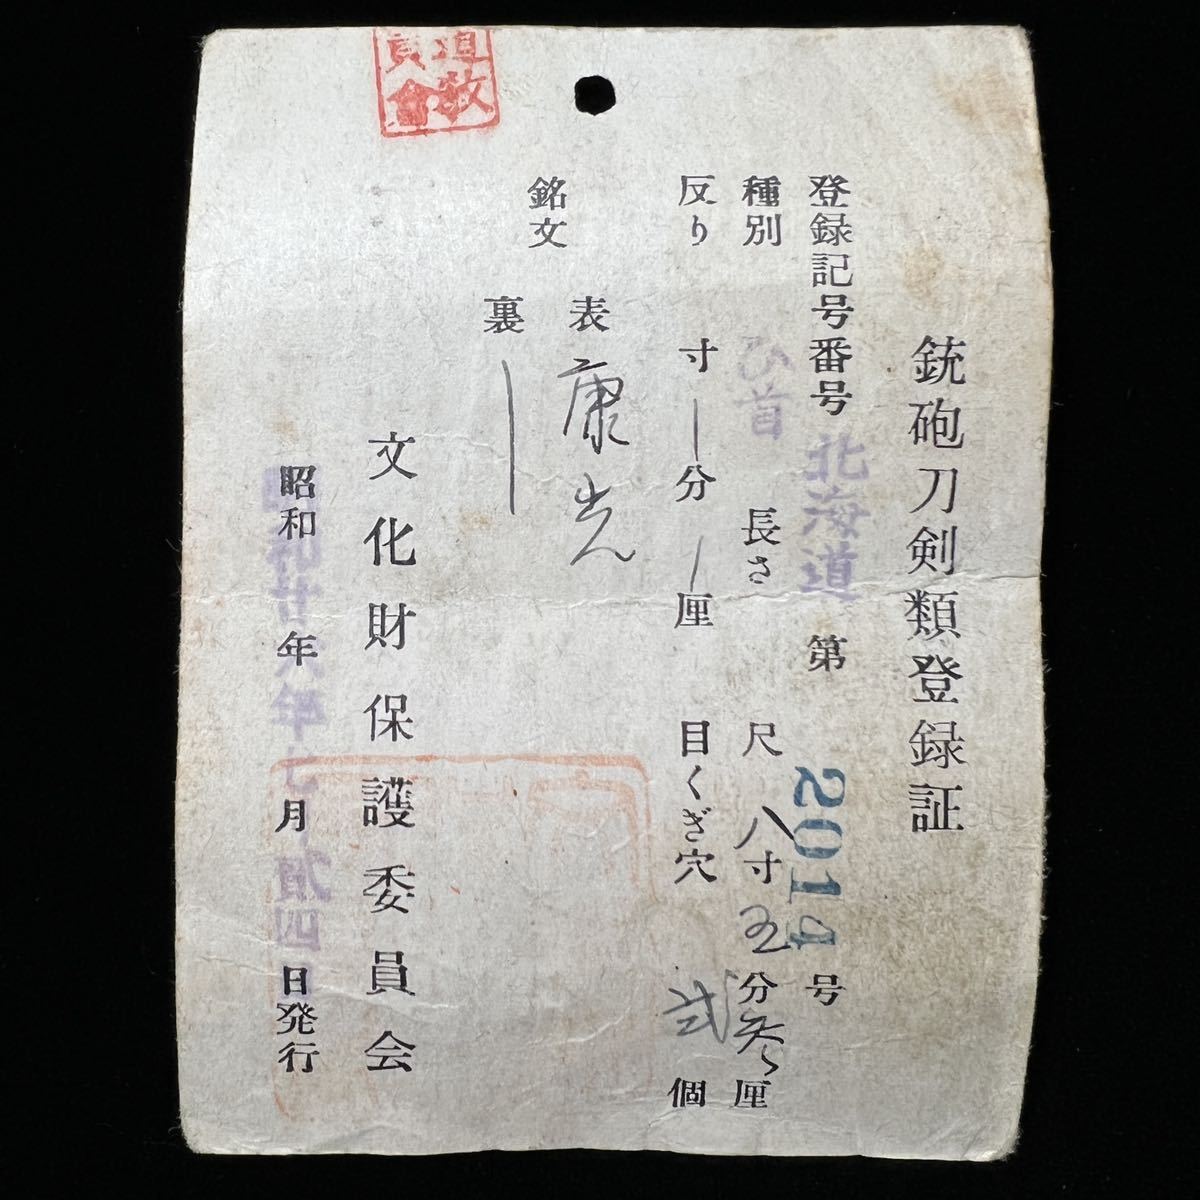 銃砲刀剣類登録証
登録記号番号 北海道 第 2014 号
種別 ひ首 長さ 尺 八寸 五分 参厘
反り 寸 ー 分 ー 厘 目くぎ穴 弐 個
銘文 表 康光
裏 ー
文化財保護委員会
昭和廿六年七月貳四日発行
道教
員會